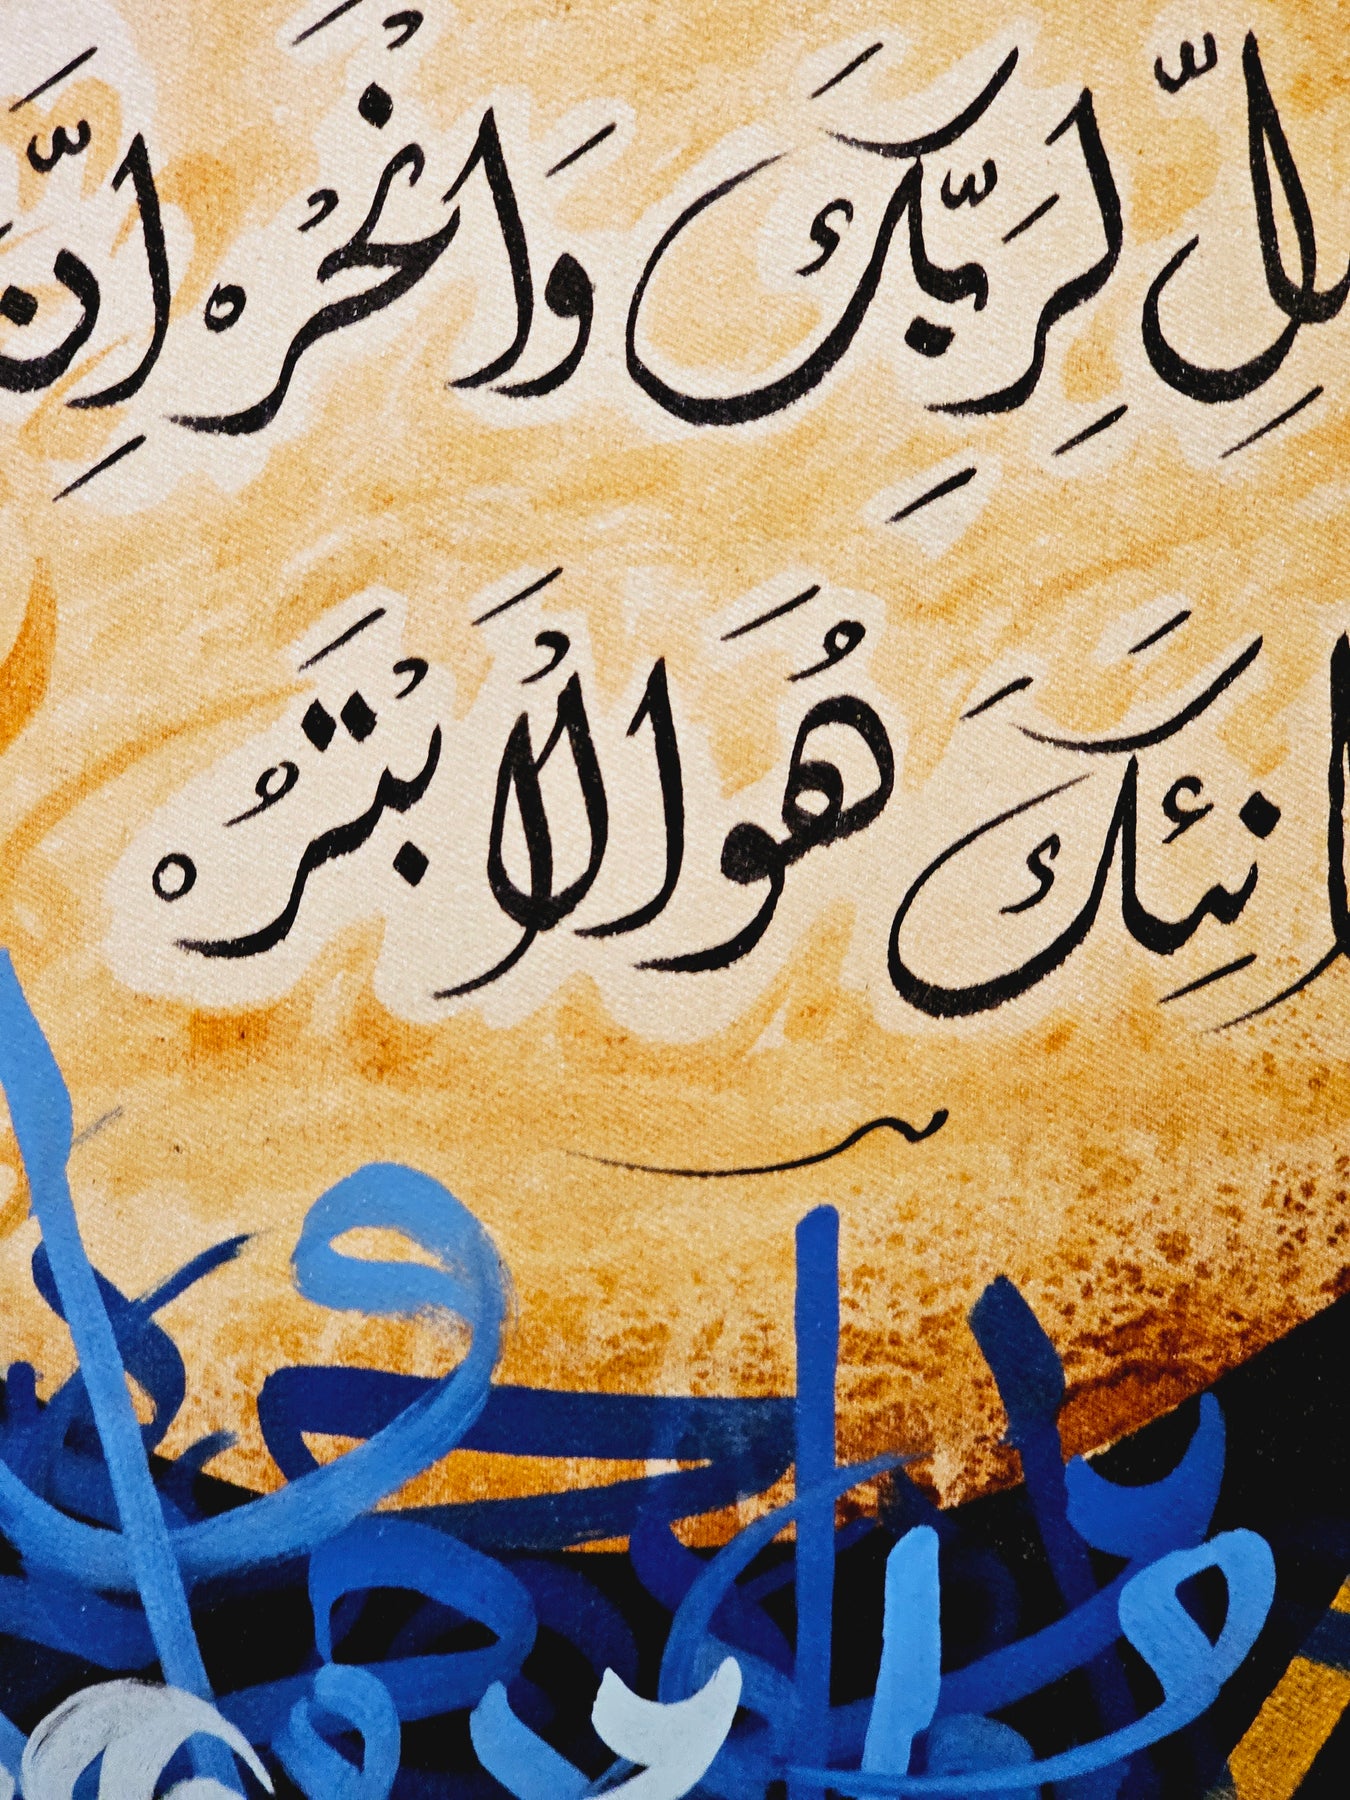 لِّ لِرَبِّكَ وَانْحَرْه اِنَّ
انِئَكَ هُوَ الْاَبْتَرُه